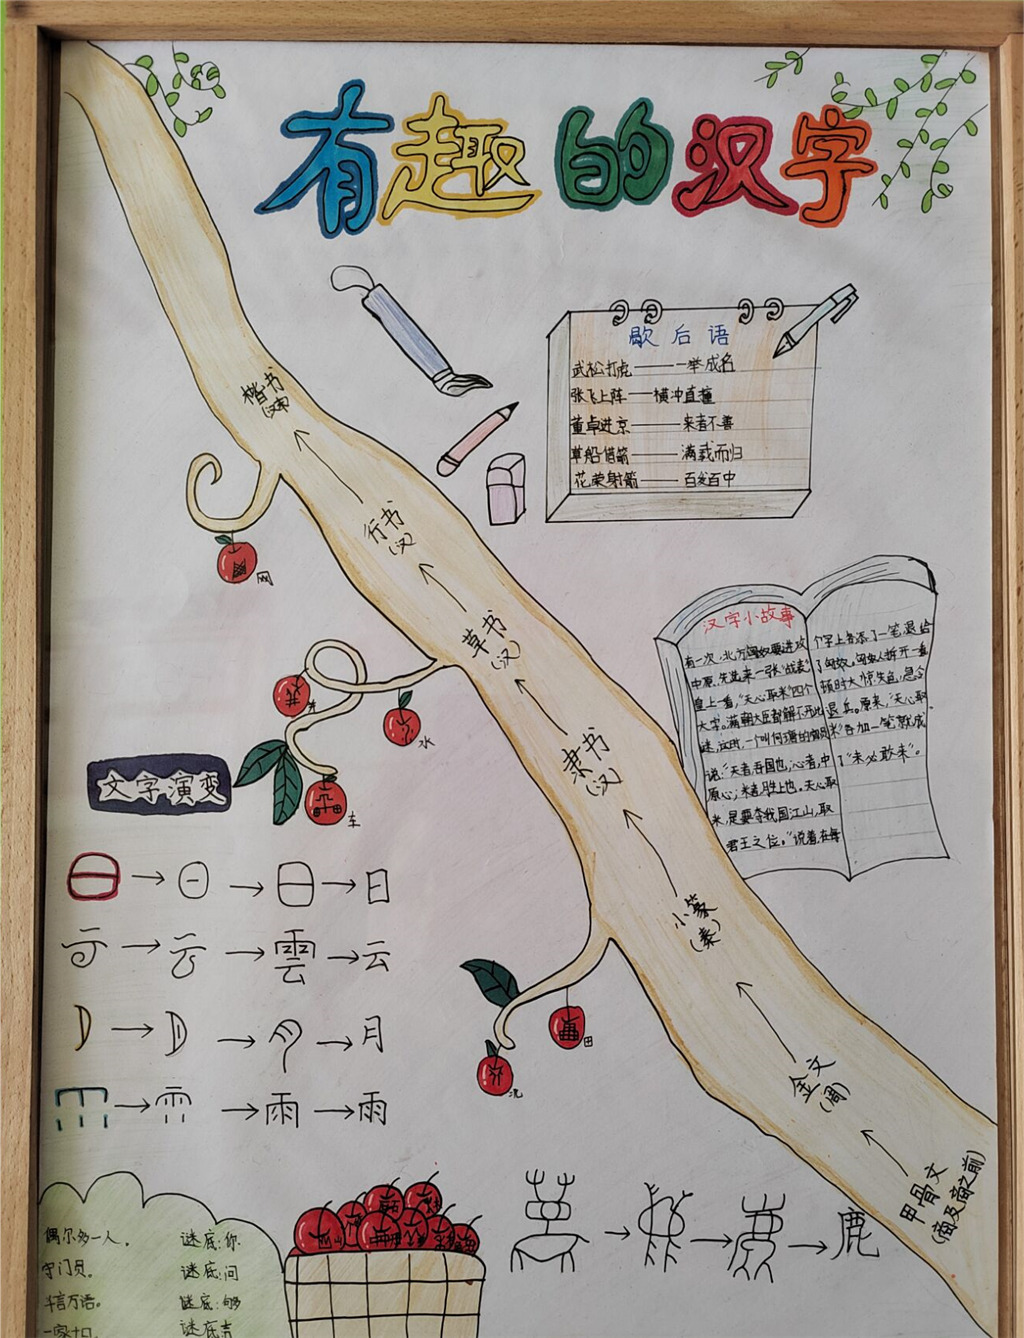 有趣的汉字
歇后语
武松打虎———一举成名
张飞上阵——横冲直撞
董卓进京———来者不善
草船借箭———满载而归
花荣射箭——百发百中
楷书
(汉末)
行书
(汉)
草书
(汉)
隶书
(汉)
小篆
(秦)
金文
(周)
甲骨文
(商及商之前)
网
水
车
田
文字演变
日
云
月
雨
鹿
汉字小故事
有一次,北方匈奴要进攻
中原,先送来一张"战表"
皇上一看,"天心取米"四个
大字。满朝大臣都解不开此
谜,这时,一个叫何瑭的
说:"天者,吾国也;心者,中
原心;米者,胜上也。天心取
米,是要夺我国江山,取
君王之位。"说着,在每
个字上各添了一笔,退给
了匈奴。匈奴人拆开一看
顿时大惊失色,急令
退兵。原来,"天心取
米"各加一笔就成
了"未必敢来"。
偶尔多一人。 谜底:你
守门员。 谜底:问
半言万语。 谜底:够
一家十口。 谜底:吉